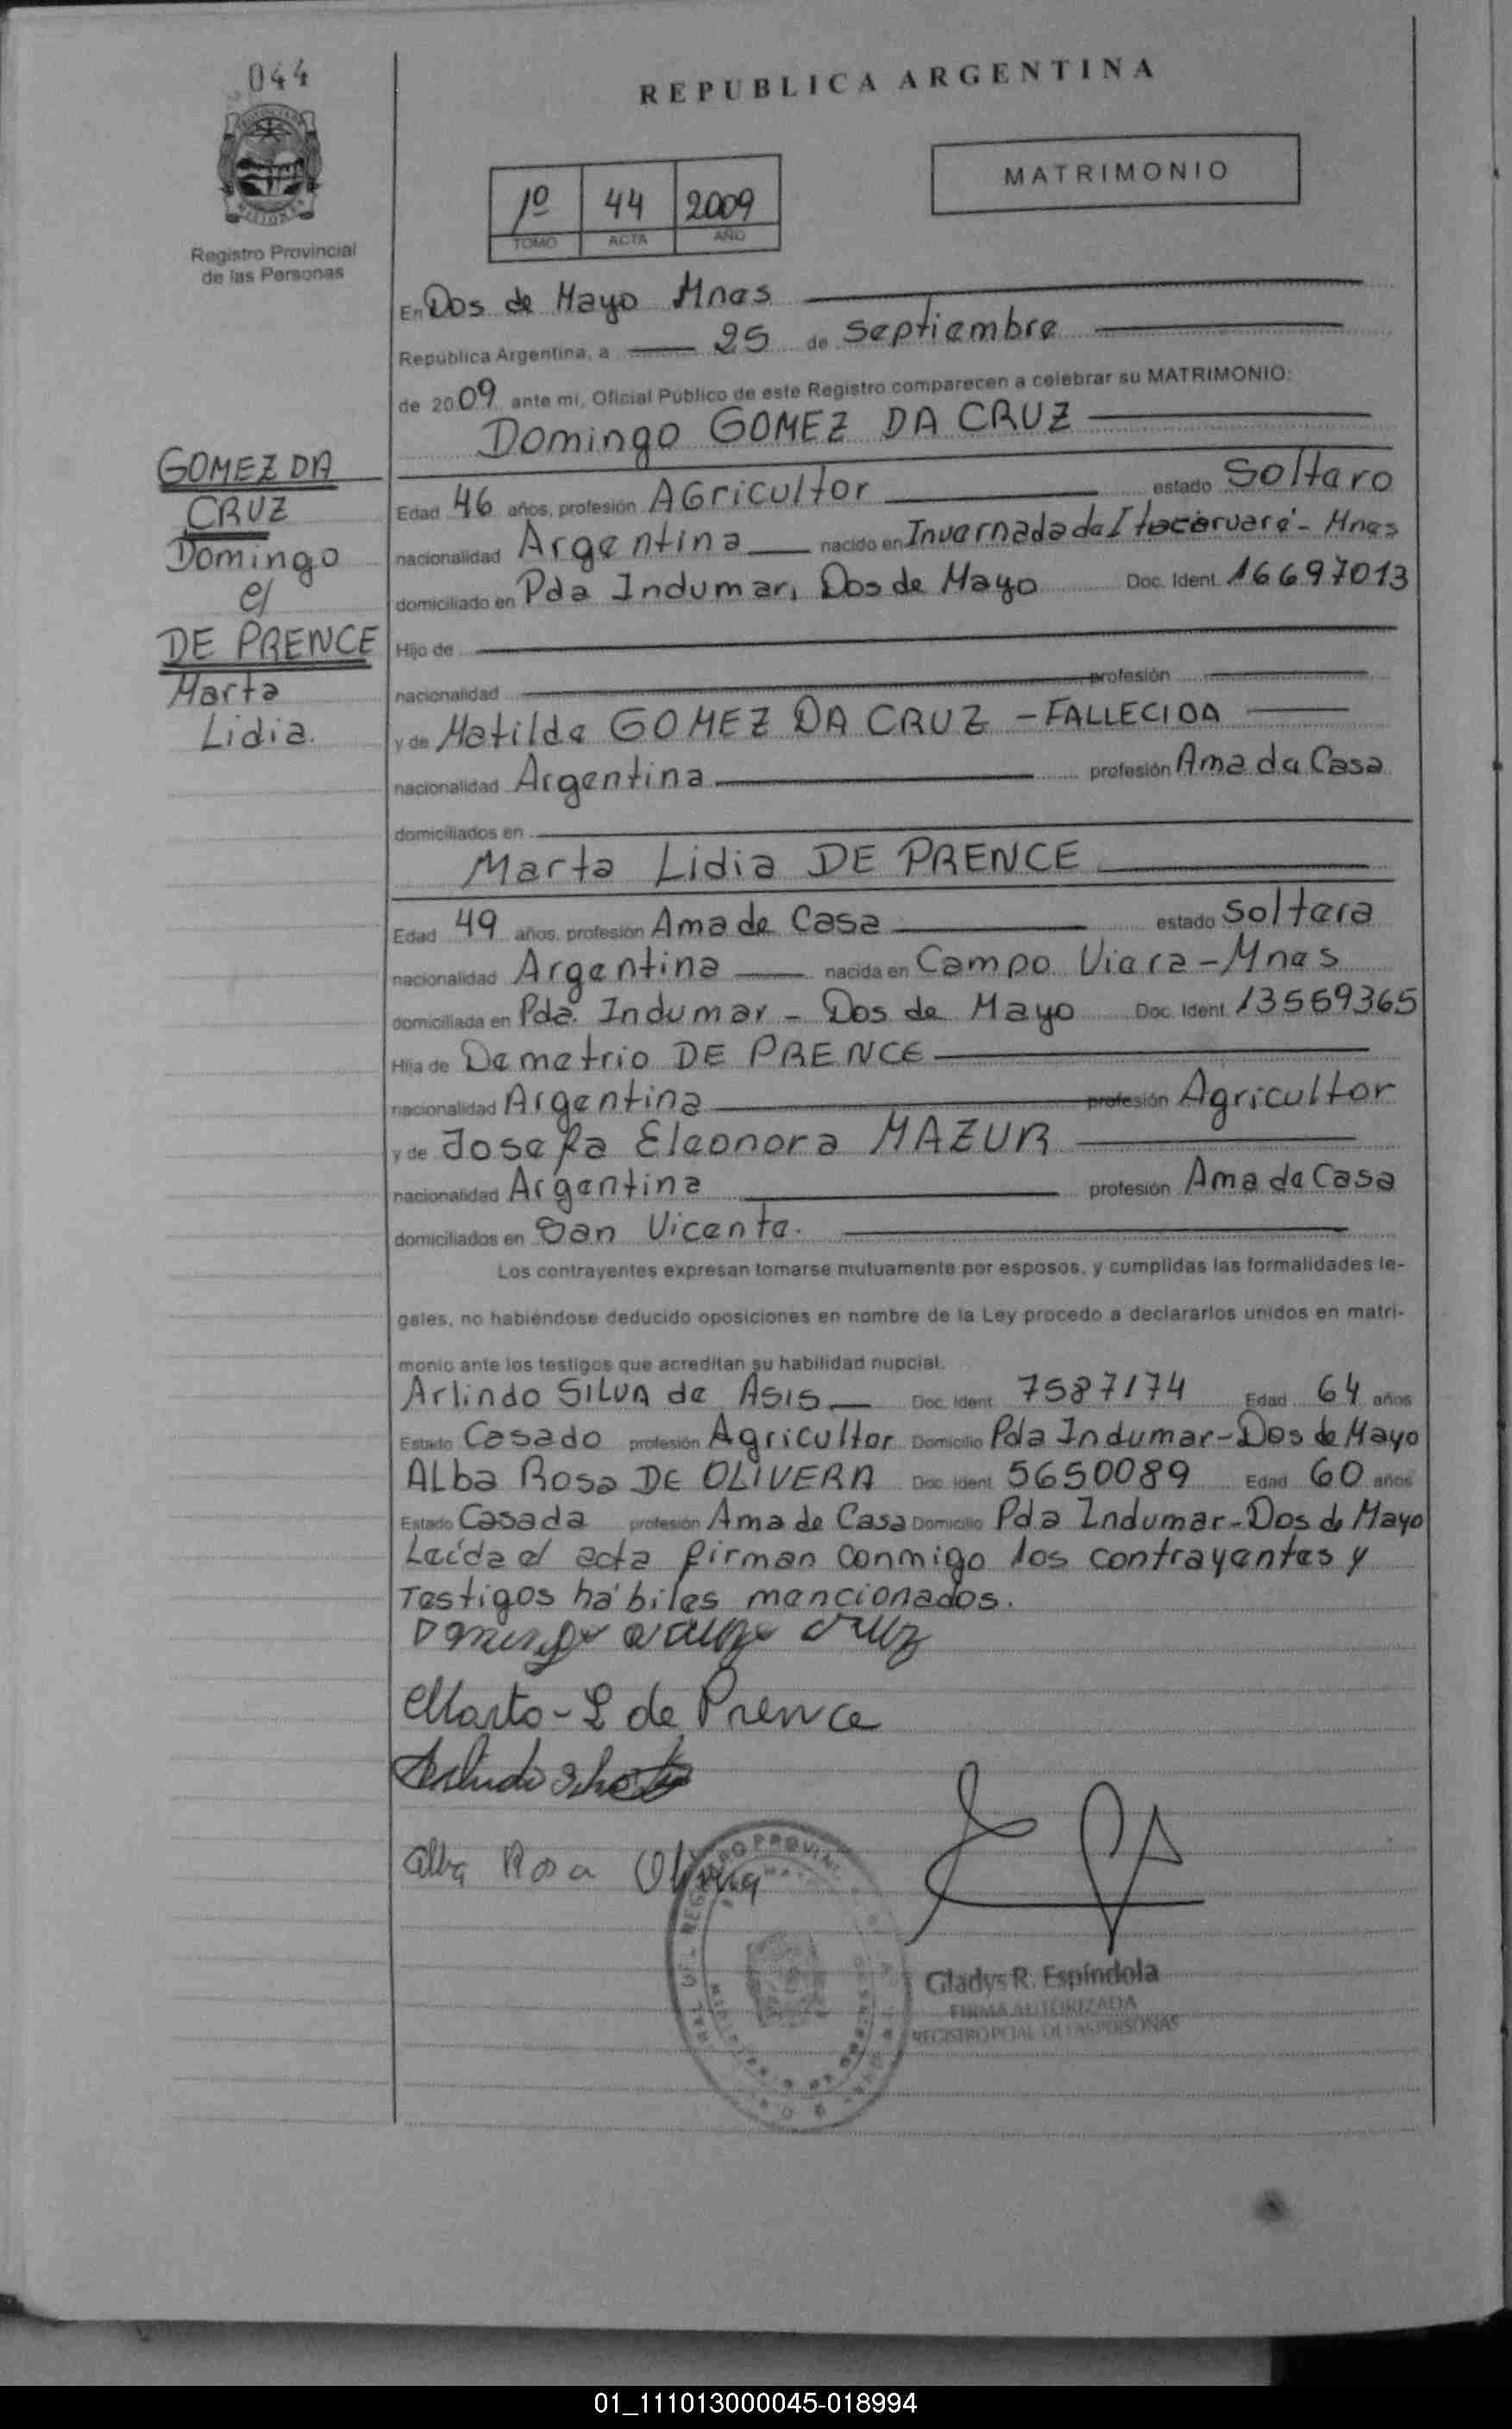 044
REPUBLICA ARGENTINA
MATRIMONIO
1º 44 2009
TOMO ACTA AÑO
Registro Provincial
de las Personas
En Dos de Mayo Mnes
República Argentina, a 25 de Septiembre
de 2009 ante mi, Oficial Público de este Registro comparecen a celebrar su MATRIMONIO:
Domingo GOMEZ DA CRUZ
GOMEZ DA
CRUZ
Domingo
c/
DE PRENCE
Marta
Lidia.
Edad 46 años, profesión AGricultor estado Soltero
nacionalidad Argentina nacido en Invernada de Itacaruaré - Mnes
domiciliado en Pda Indumar, Dos de Mayo Doc. Ident. 16697013
Hijo de
nacionalidad profesión
y de Matilde GOMEZ DA CRUZ - FALLECIDA
nacionalidad Argentina profesión Ama de Casa
domiciliados en
Marta Lidia DE PRENCE
Edad 49 años, profesión Ama de Casa estado Soltera
nacionalidad Argentina nacida en Campo Viera - Mnes
domiciliada en Pda. Indumar - Dos de Mayo Doc. Ident. 13559365
Hija de Demetrio DE PRENCE
nacionalidad Argentina profesión Agricultor
y de Josefa Eleonora MAZUR
nacionalidad Argentina profesión Ama de Casa
domiciliados en San Vicente.
Los contrayentes expresan tomarse mutuamente por esposos, y cumplidas las formalidades le-
gales, no habiéndose deducido oposiciones en nombre de la Ley procedo a declararlos unidos en matri-
monio ante los testigos que acreditan su habilidad nupcial.
Arlindo SILVA de ASIS Doc. Ident. 7587174 Edad 64 años
Estado Casado profesión Agricultor Domicilio Pda Indumar - Dos de Mayo
ALba Rosa DE OLIVERA Doc. Ident. 5650089 Edad 60 años
Estado Casada profesión Ama de Casa Domicilio Pda Indumar - Dos de Mayo
Leída el acta firman conmigo los contrayentes y
Testigos hábiles mencionados.
Marta - L de Prence
Alba Rosa Olivera
Gladys R. Espíndola
FIRMA AUTORIZADA
REGISTRO PCIAL. DE LAS PERSONAS
01_111013000045-018994